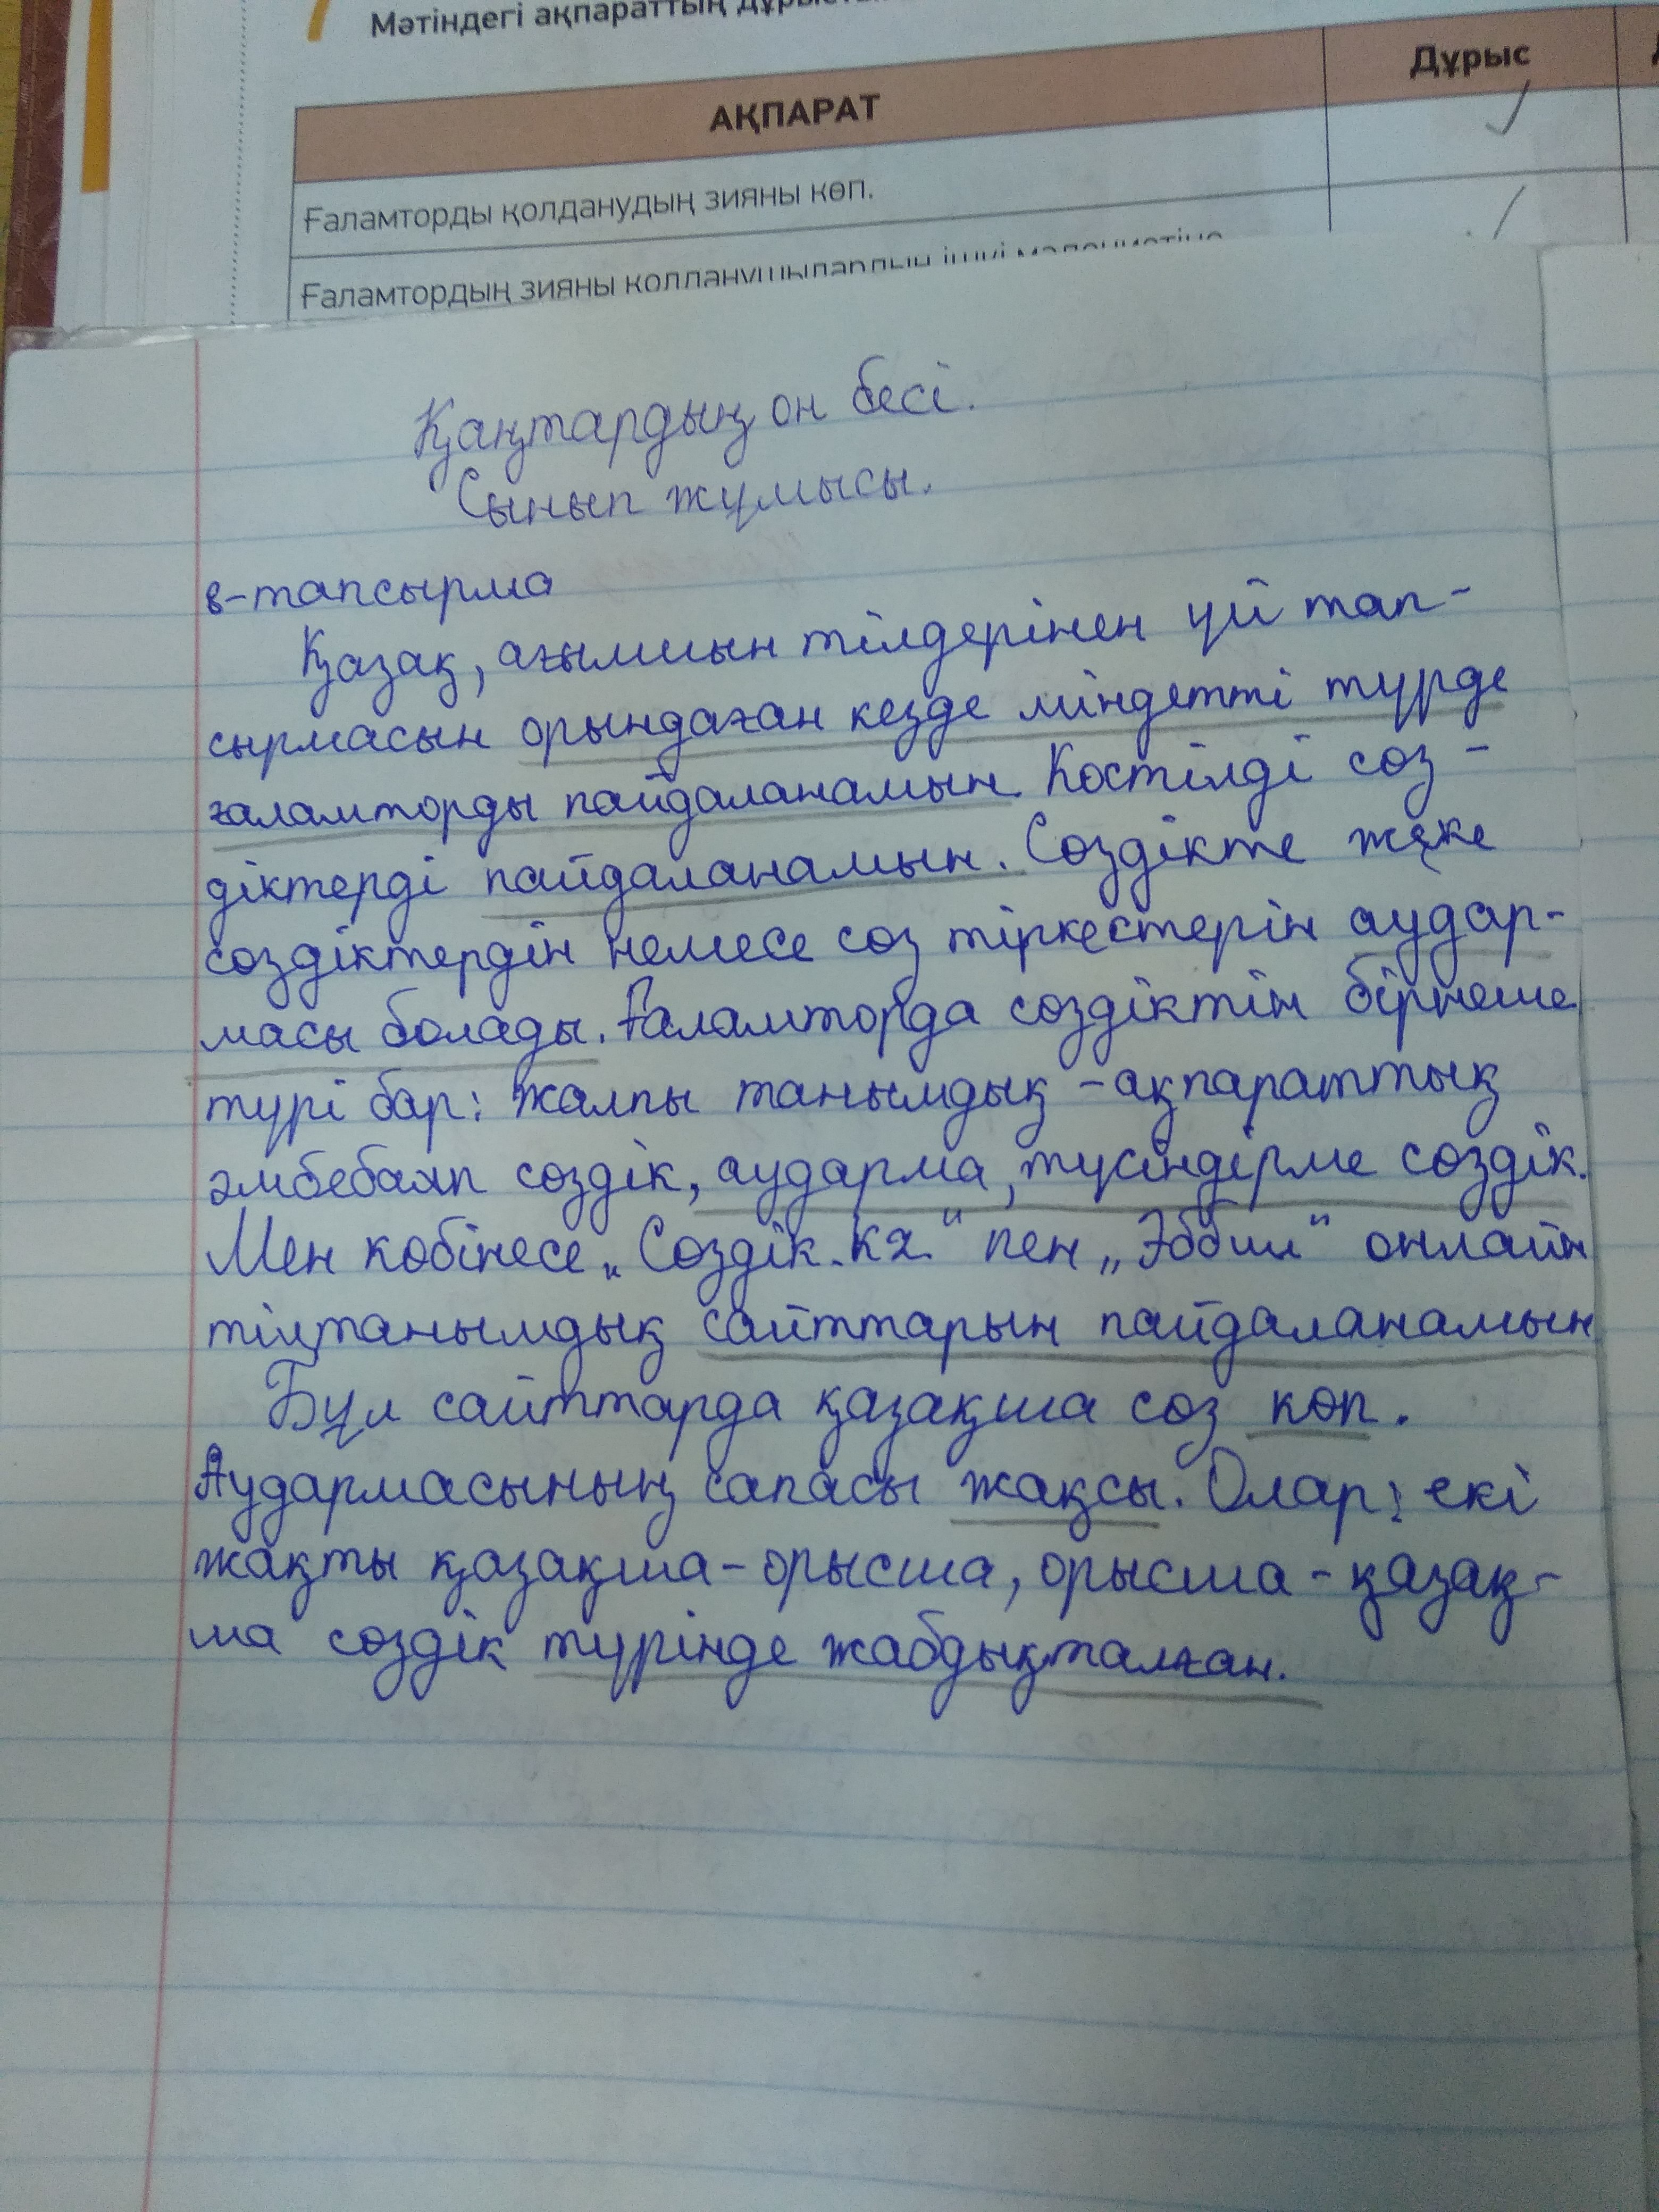 7 Мәтіндегі ақпараттың
АҚПАРАТ Дұрыс
Ғаламторды қолданудың зияны көп.
Ғаламтордың зияны қолданушылардың ішкі мәдениетіне
Қаңтардың он бесі.
Сынып жұмысы.
8-тапсырма
Қазақ, ағылшын тілдерінен үй тап-
сырмасын орындаған кезде міндетті түрде
ғаламторды пайдаланамын. Қостілді сөз-
діктерді пайдаланамын. Сөздікте жеке
сөздіктердін немесе сөз тіркестерін аудар-
масы болады. Ғаламторда сөздіктін бірнеше
түрі бар: жалпы танымдық-ақпараттық
әмбебаяп сөздік, аударма, түсіндірме сөздік.
Мен көбінесе „Сөздік.кz" пен „Әббил" онлайн
тілтанымдық сайттарын пайдаланамын
Бұл сайттарда қазақша сөз көп.
Аудармасының сапасы жақсы. Олар: екі
жақты қазақша-орысша, орысша-қазақ-
ша сөздік түрінде жабдықталған.